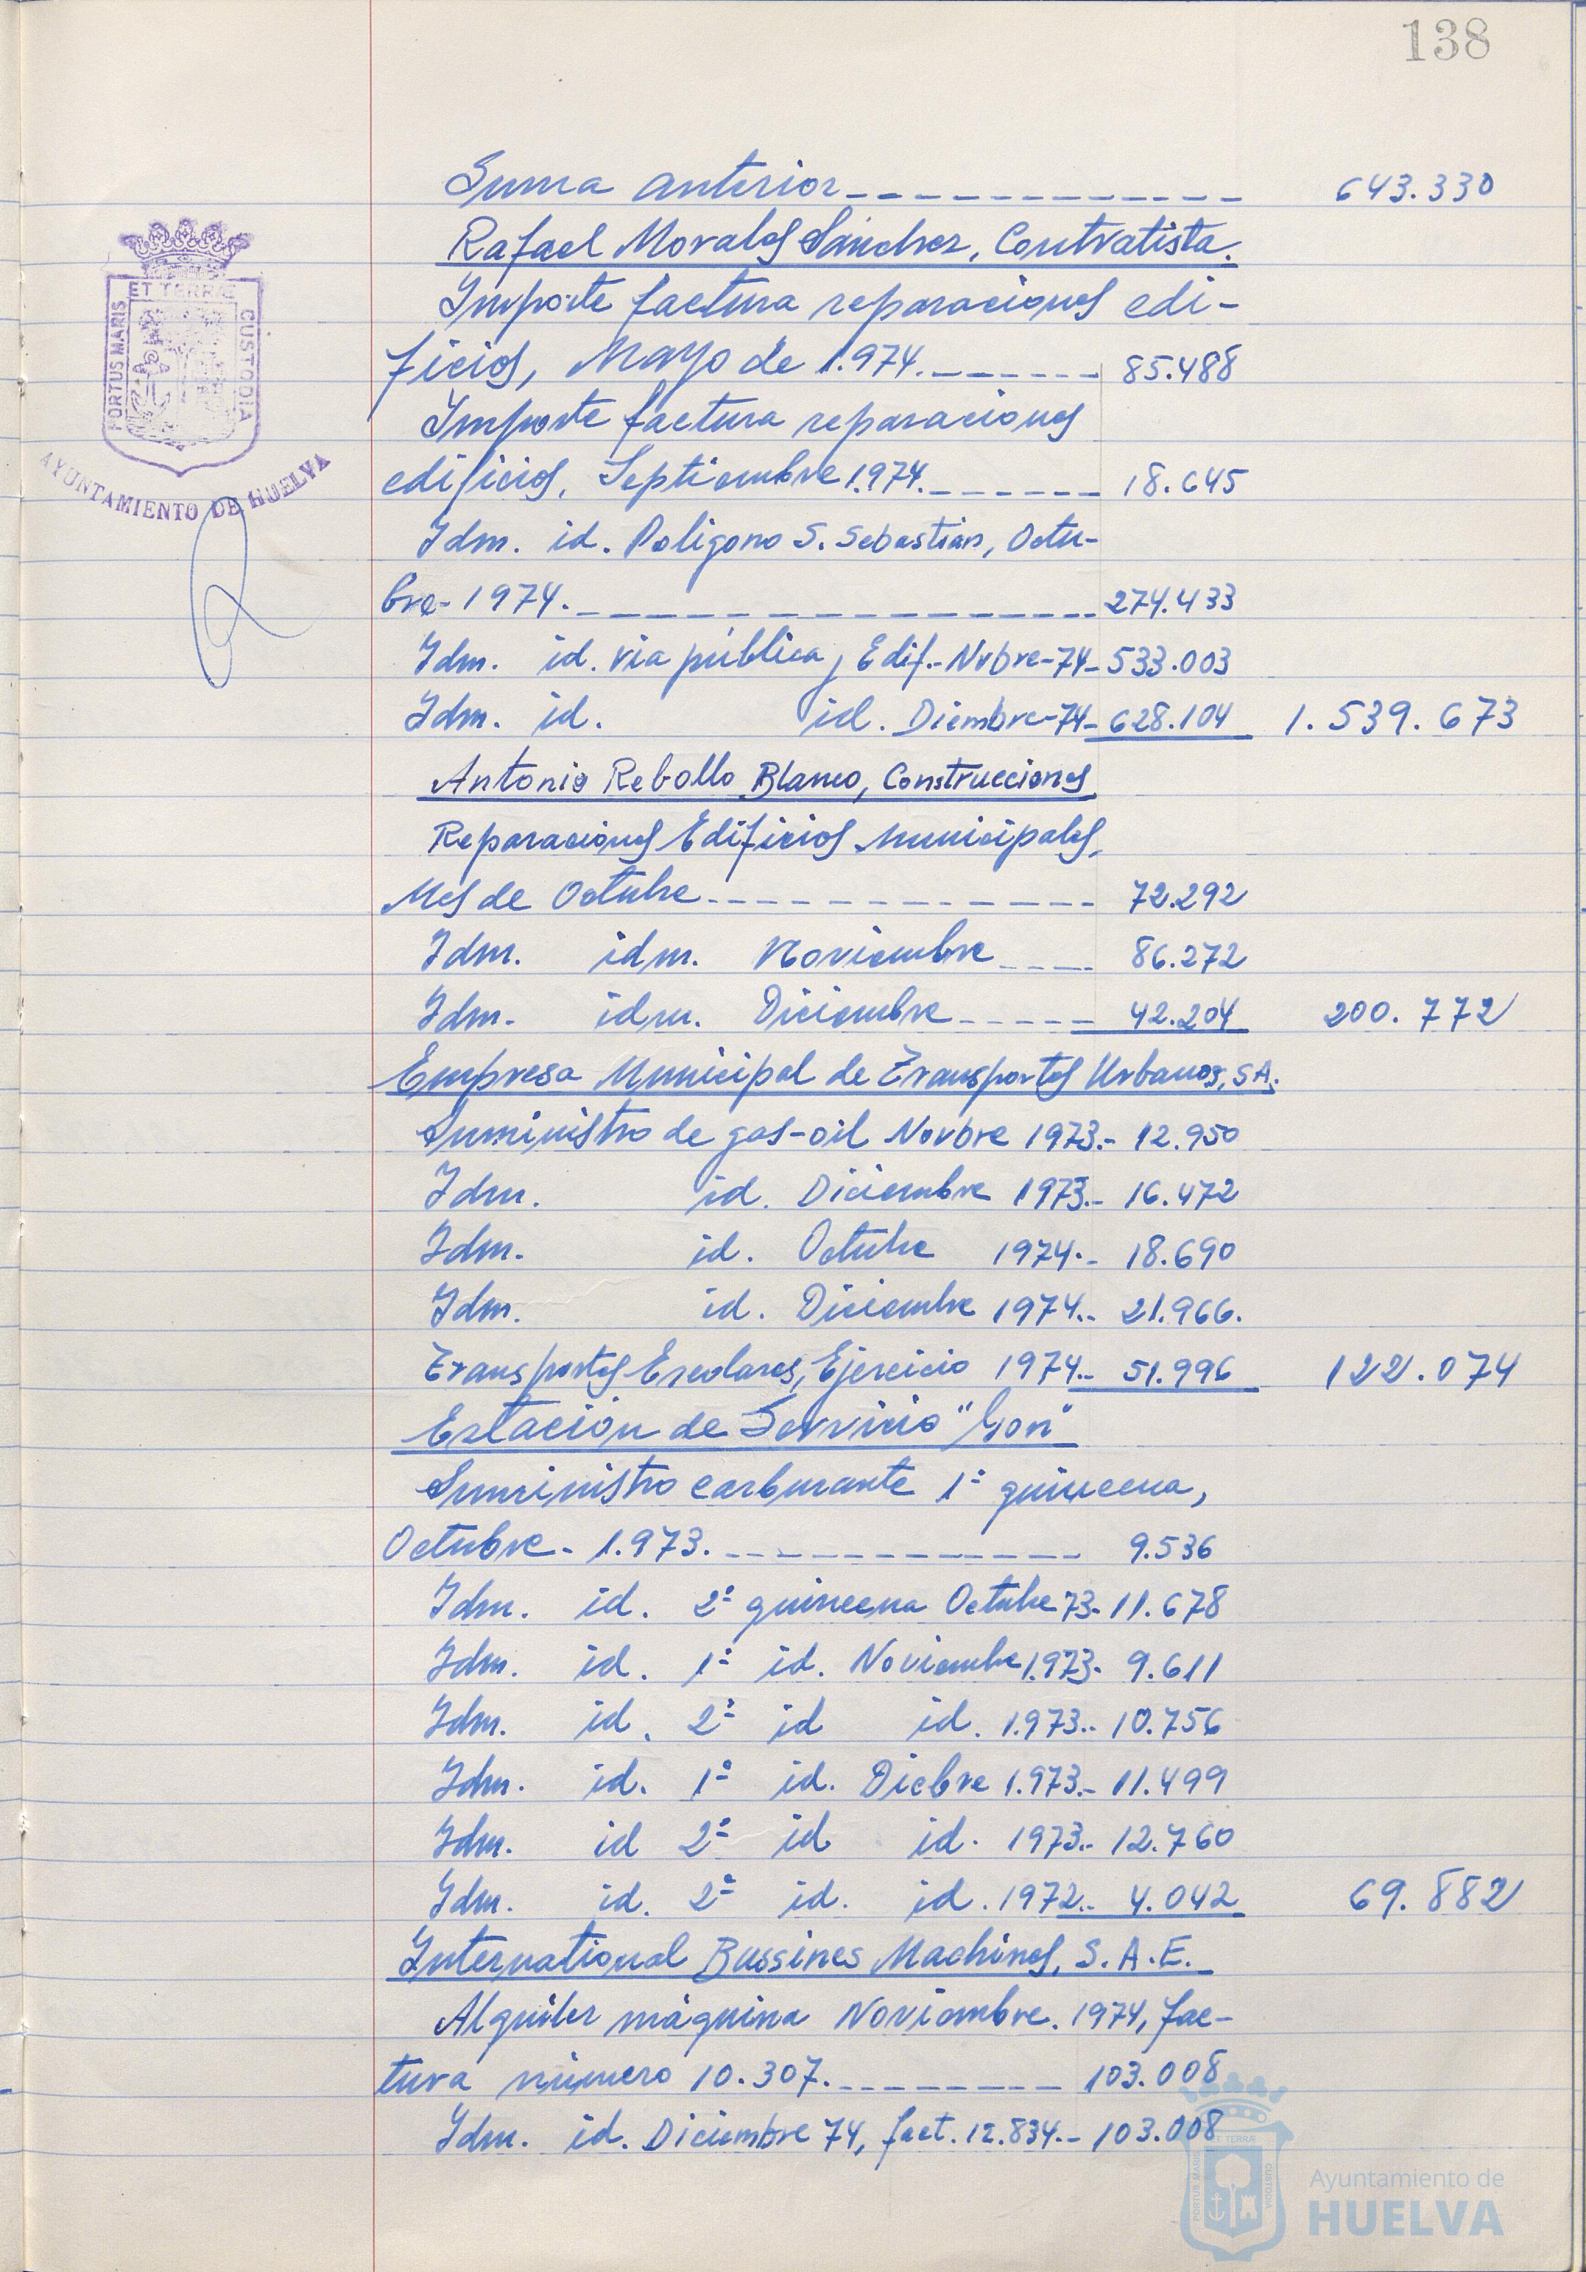 138
Suma anterior------------- 643.330
Rafael Morales Sánchez, Contratista.
Importe factura reparaciones edi-
ficios, Mayo de 1.974.------- 85.488
Importe factura reparaciones
edificios, Septiembre 1.974.------- 18.645
Idm. id. Poligono S. Sebastian, Octu-
bre- 1974.------------------ 274.433
Idm. id. via pública y Edif.- Nvbre-74- 533.003
Idm. id. id. Diembre-74- 628.104 1.539.673
Antonio Rebollo Blanco, Construcciones
Reparaciones Edificios Municipales,
Mes de Octubre-------------- 72.292
Idm. idm. Noviembre---- 86.272
Idm. idm. Diciembre----- 42.204 200.772
Empresa Municipal de Transportes Urbanos, S.A.
Suministro de gas-oil Novbre 1973.- 12.950
Idm. id. Diciembre 1973.- 16.472
Idm. id. Octubre 1974.- 18.690
Idm. id. Diciembre 1974.- 21.966.
Transportes Escolares, Ejercicio 1974.- 51.996 122.074
Estación de Servicio "Gon"
Suministro carburante 1ª quincena,
Octubre- 1.973.------------ 9.536
Idm. id. 2ª quincena Octubre 73- 11.678
Idm. id. 1ª id. Noviembre 1.973- 9.611
Idm. id. 2ª id id. 1.973.- 10.756
Idm. id. 1ª id. Dicbre 1.973.- 11.499
Idm. id 2ª id id. 1973.- 12.760
Idm. id. 2ª id. id. 1972.- 4.042 69.882
International Bussines Machines, S.A.E.
Alquiler máquina Noviembre. 1974, fac-
tura número 10.307.-------- 103.008
Idm. id. Diciembre 74, fact. 12.834.- 103.008
PORTUS MARIS
ET TERRÆ
CUSTODIA
AYUNTAMIENTO DE HUELVA
PORTUS MARIS
ET TERRÆ
CUSTODIA
Ayuntamiento de
HUELVA